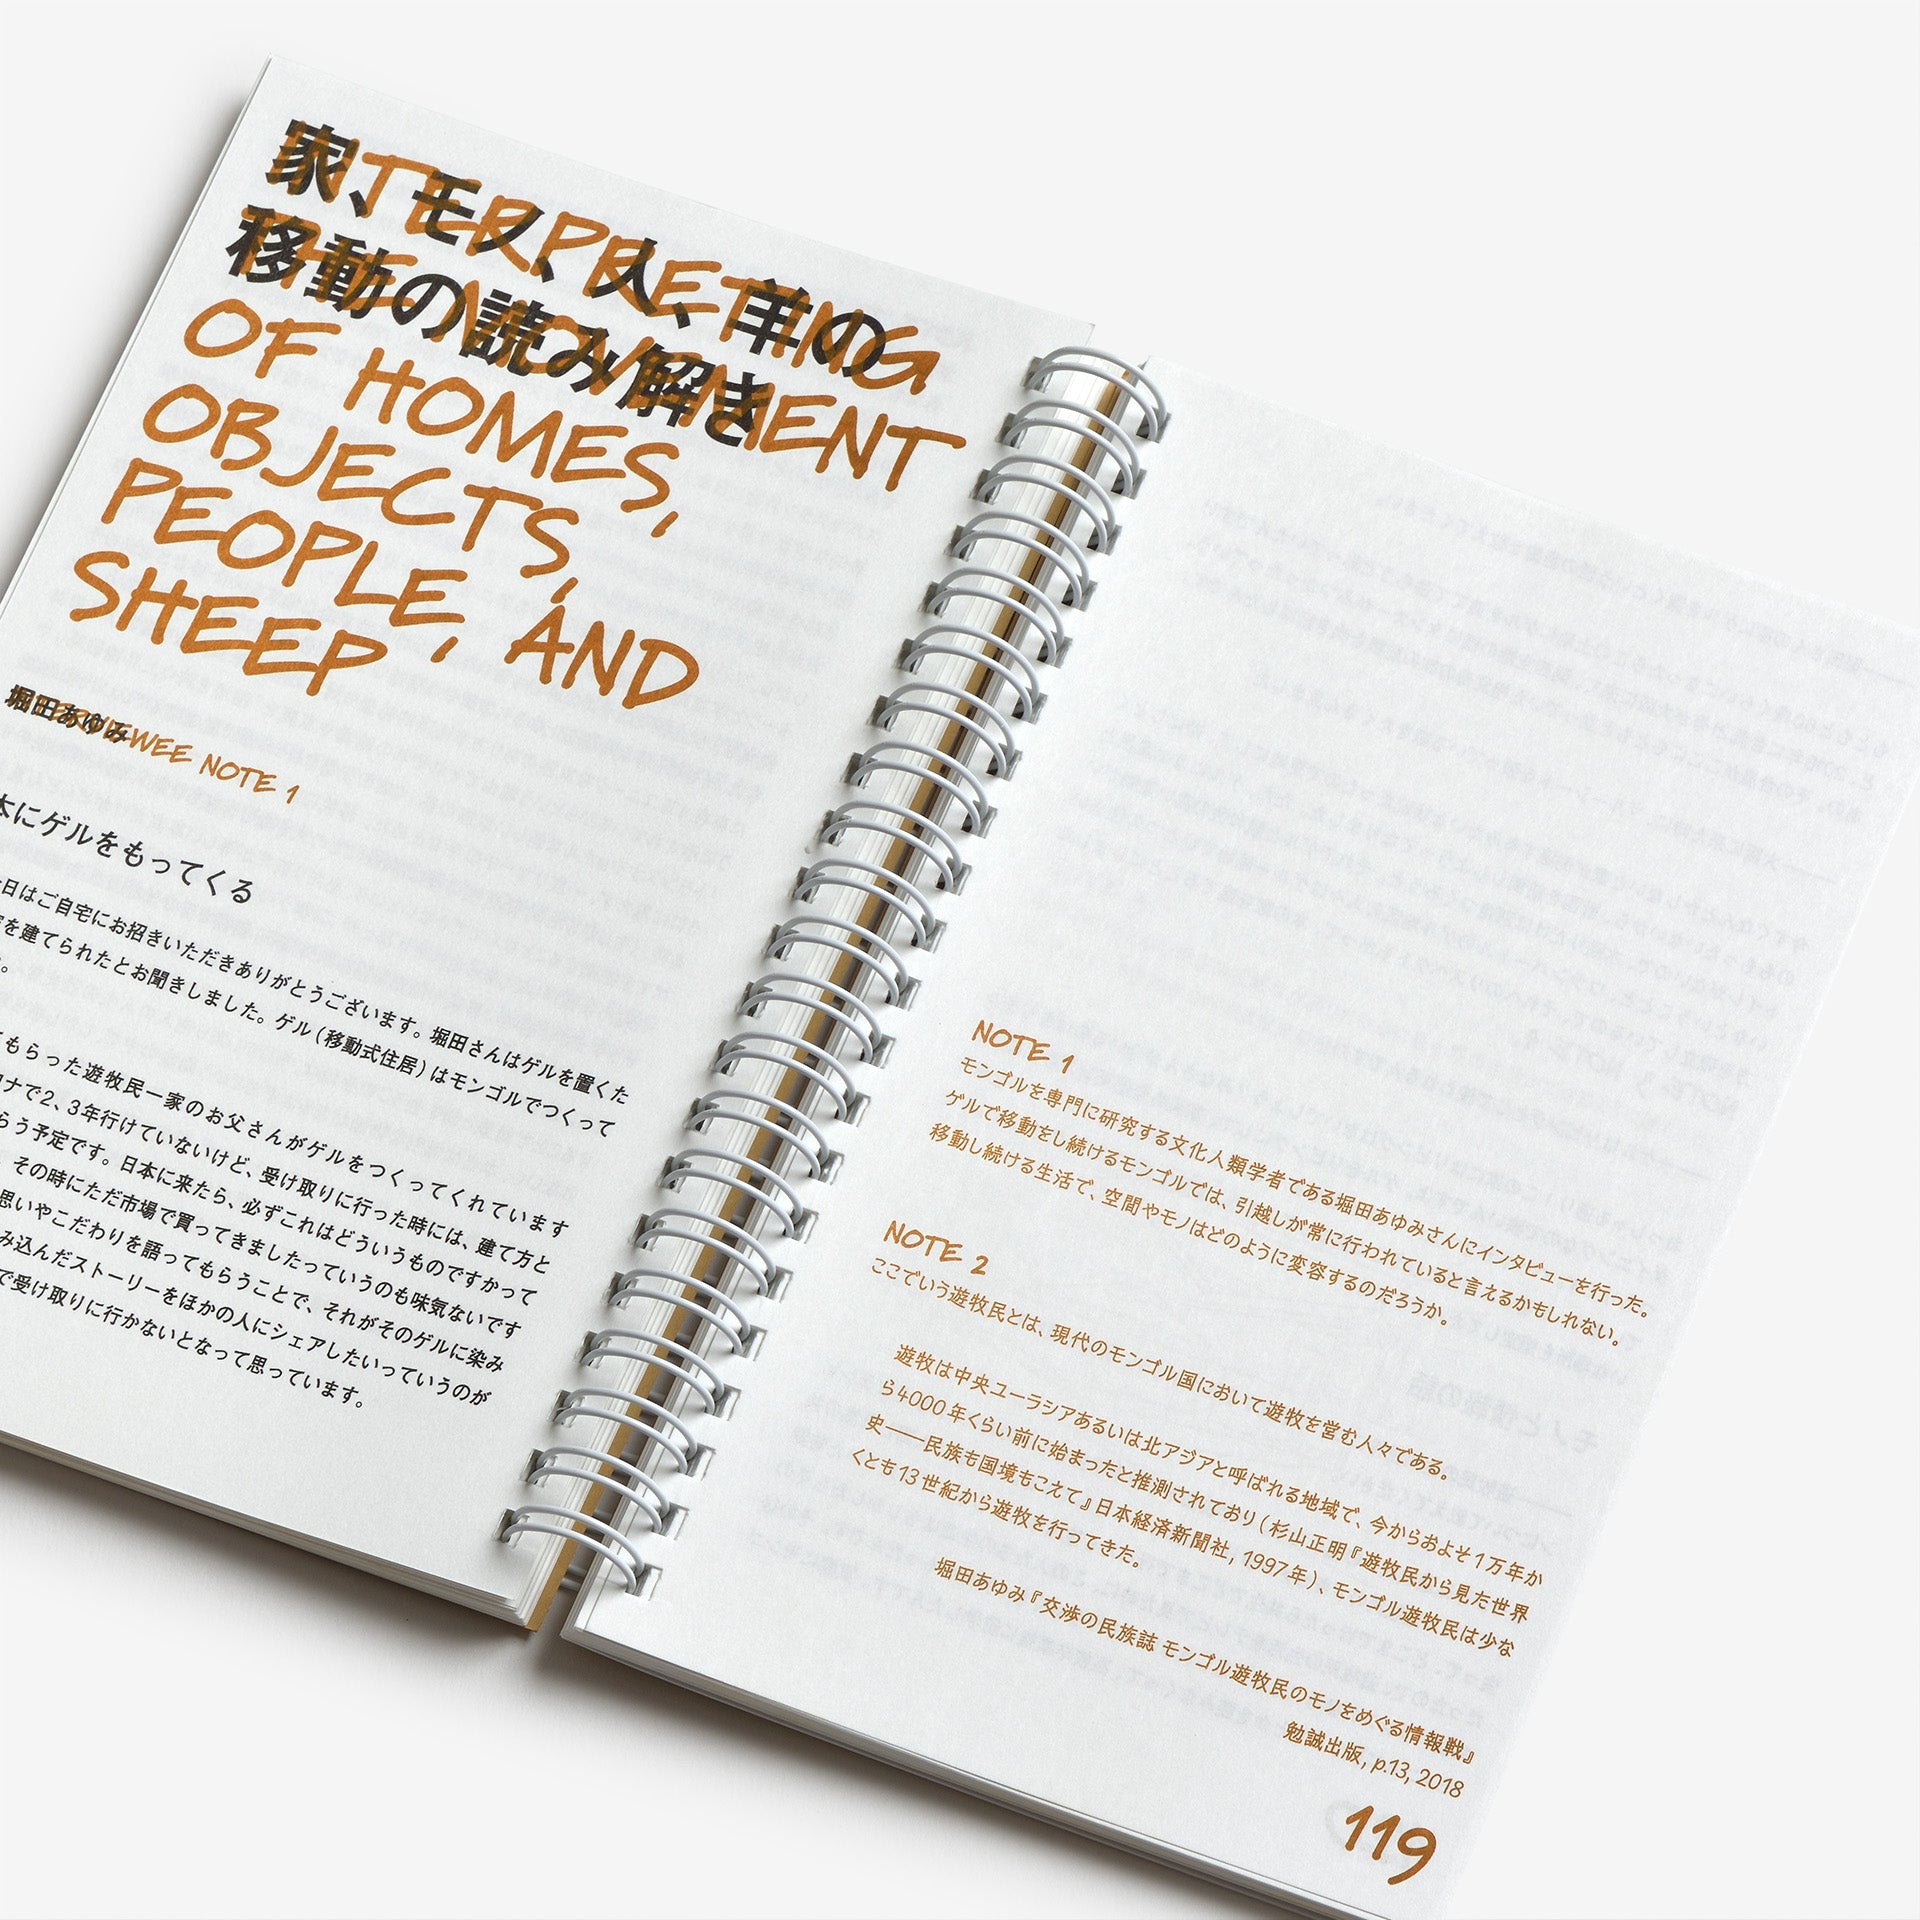 家、モノ、人、羊の
移動の読み解き
INTERPRETING
THE MOVEMENT
OF HOMES,
OBJECTS,
PEOPLE, AND
SHEEP
堀田あゆみ
NOTE 1
本にゲルをもってくる
日はご自宅にお招きいただきありがとうございます。堀田さんはゲルを置くた
を建てられたとお聞きしました。ゲル(移動式住居)はモンゴルでつくって
。
てもらった遊牧民一家のお父さんがゲルをつくってくれています
ナで2、3年行けていないけど、受け取りに行った時には、建て方と
らう予定です。日本に来たら、必ずこれはどういうものですかって
、その時にただ市場で買ってきましたっていうのも味気ないです
思いやこだわりを語ってもらうことで、それがそのゲルに染み
み込んだストーリーをほかの人にシェアしたいっていうのが
で受け取りに行かないとなって思っています。
NOTE 1
モンゴルを専門に研究する文化人類学者である堀田あゆみさんにインタビューを行った。
ゲルで移動をし続けるモンゴルでは、引越しが常に行われていると言えるかもしれない。
移動し続ける生活で、空間やモノはどのように変容するのだろうか。
NOTE 2
ここでいう遊牧民とは、現代のモンゴル国において遊牧を営む人々である。
遊牧は中央ユーラシアあるいは北アジアと呼ばれる地域で、今からおよそ1万年か
ら4000年くらい前に始まったと推測されており(杉山正明『遊牧民から見た世界
史——民族も国境もこえて』日本経済新聞社, 1997年)、モンゴル遊牧民は少な
くとも13世紀から遊牧を行ってきた。
堀田あゆみ『交渉の民族誌 モンゴル遊牧民のモノをめぐる情報戦』
勉誠出版, p.13, 2018
119